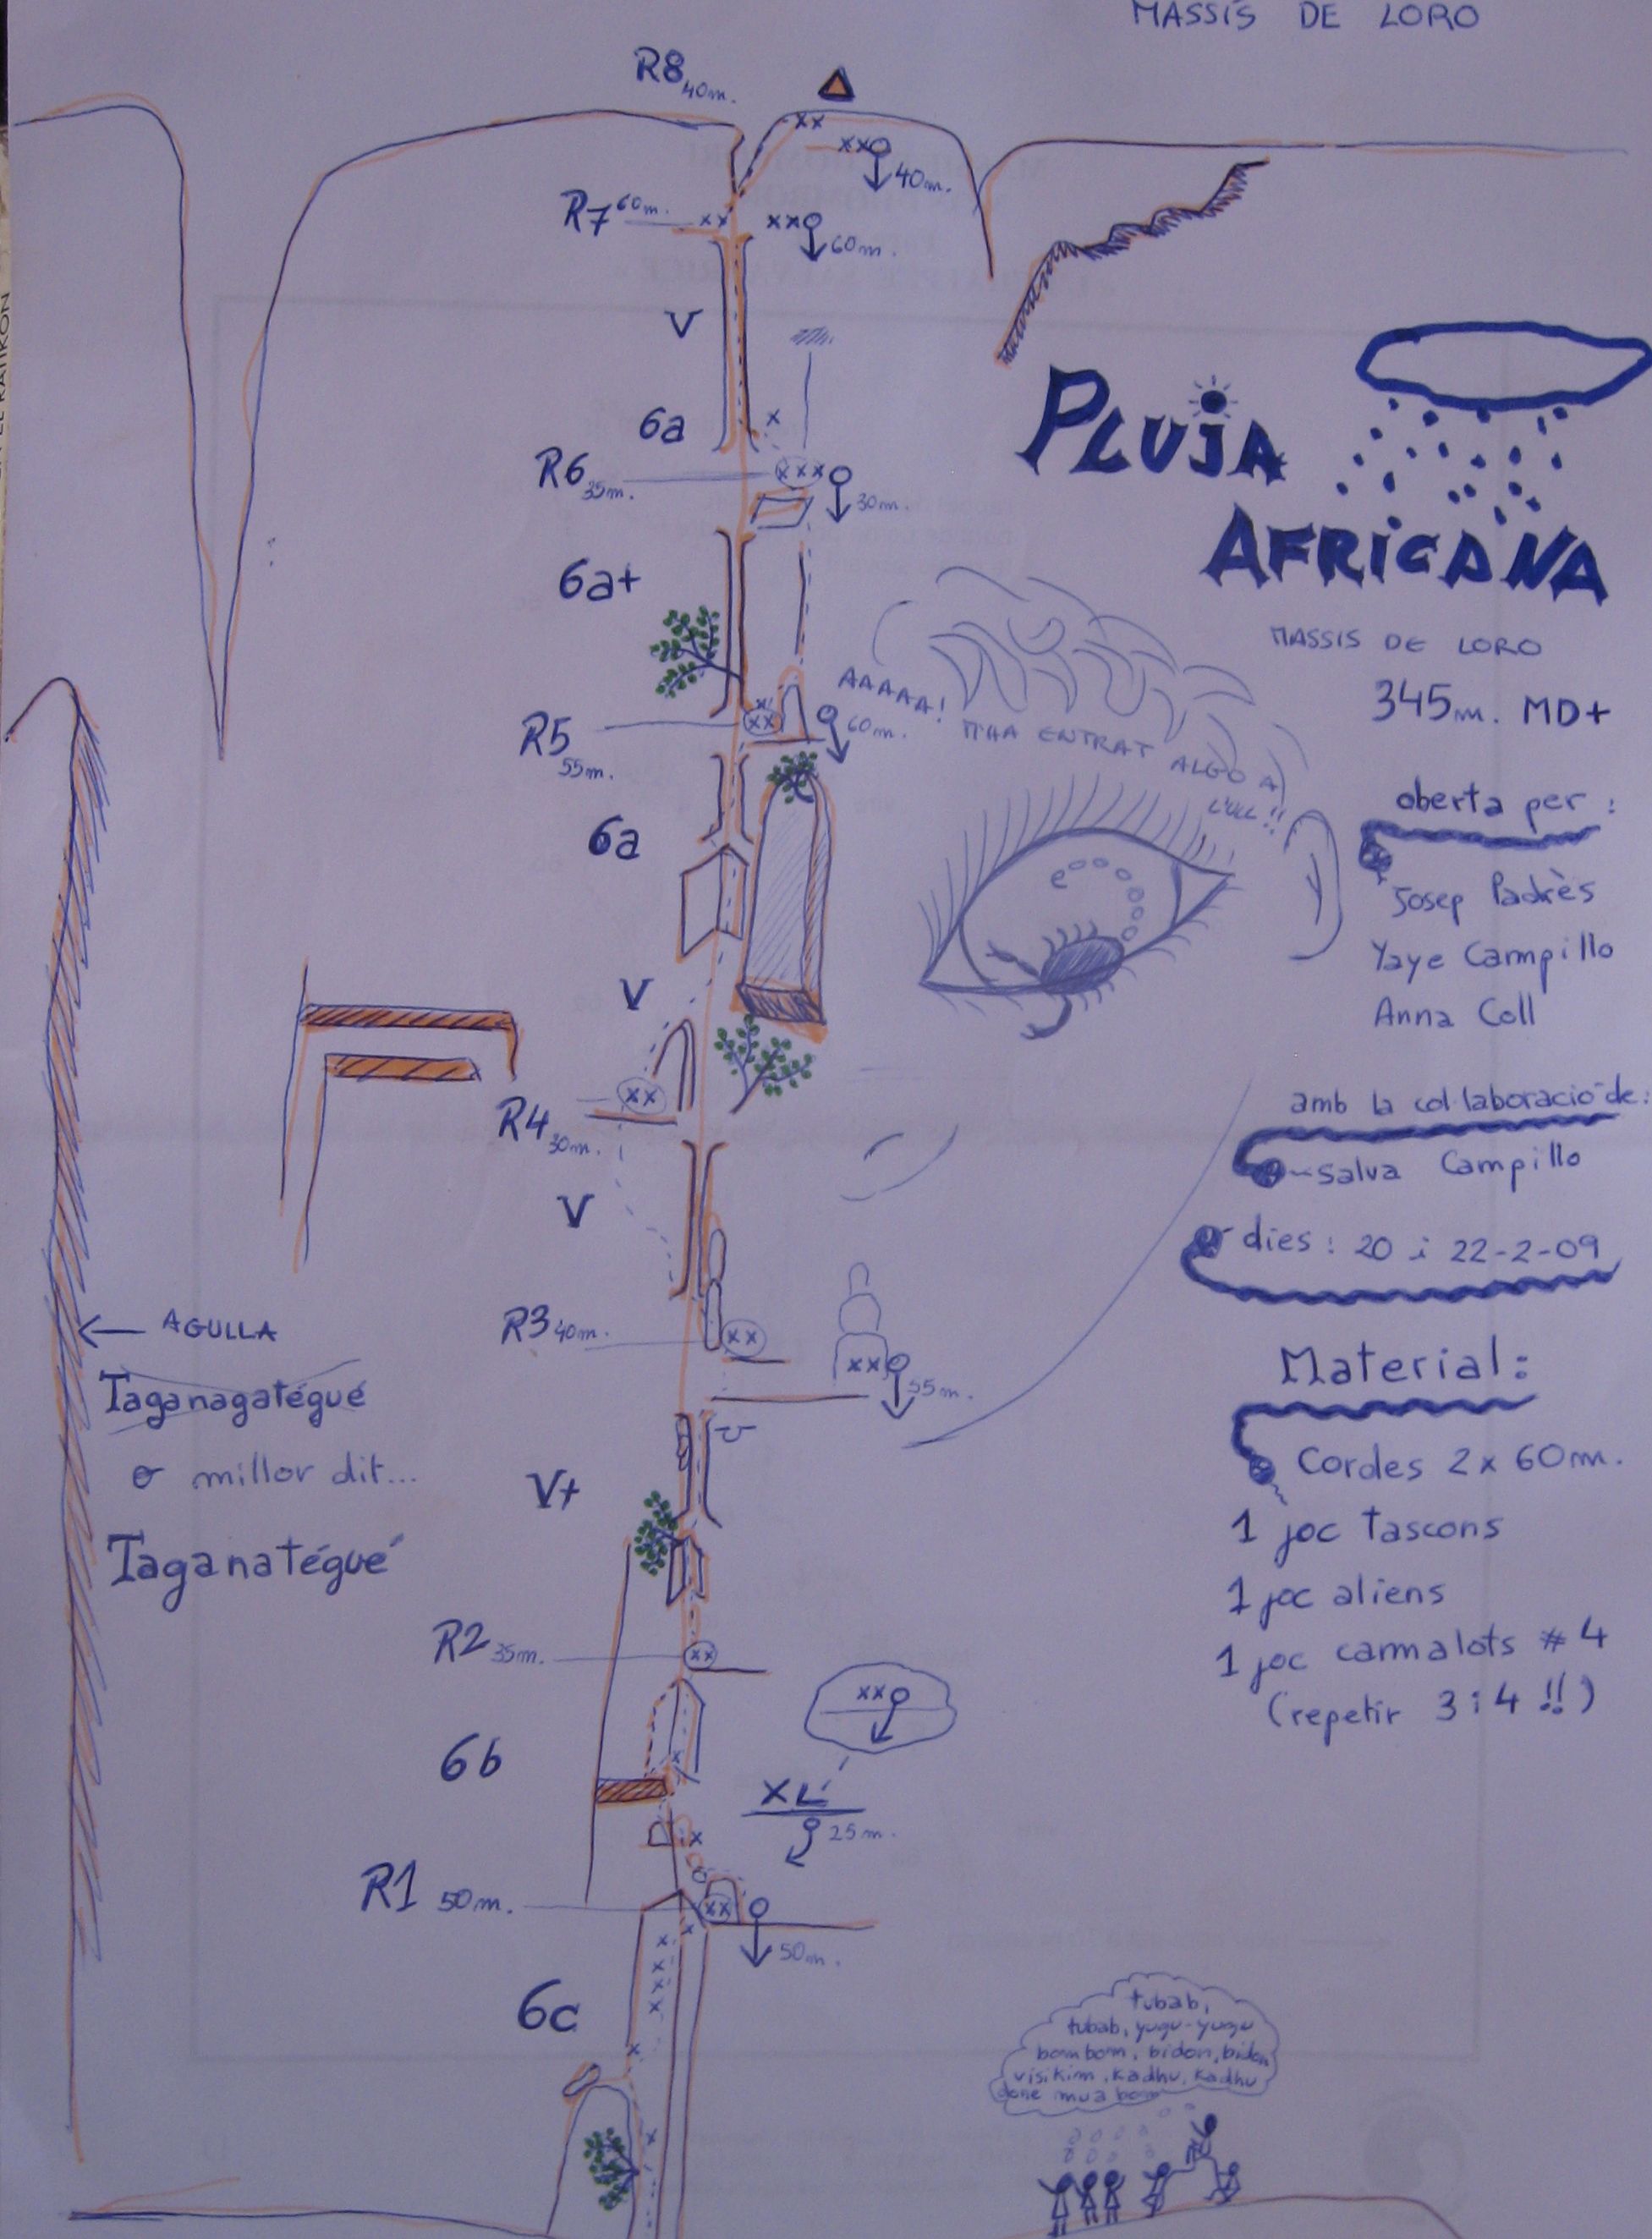 MASSÍS DE LORO
R8 40m.
xx
xx 40m.
R7 60m.
xx
xx 60m.
V
x
6a
R6 35m.
xxx 30m.
6a+
R5 55m.
xx 60m.
6a
V
R4 30m.
xx
V
R3 40m.
xx
xx 55m.
V+
R2 35m.
xx
xx
6b
x
XL
25m.
x
R1 50m.
xx 50m.
6c
PLUJA
AFRICANA
MASSIS DE LORO
345m. MD+
AAAAA! M'HA ENTRAT ALGO A
L'ULL!!
oberta per:
Josep Padrès
Yaye Campillo
Anna Coll
amb la col·laboració de:
Salva Campillo
dies: 20 i 22-2-09
Material:
Cordes 2x60m.
1 joc tascons
1 joc aliens
1 joc camalots #4
(repetir 3 i 4!!)
← AGULLA
Taganagatégué
o millor dit...
Taganatégué
tubab,
tubab, yugu-yugu
bombom, bidon, bidon
visikim, kadhu, kadhu
done mua bom